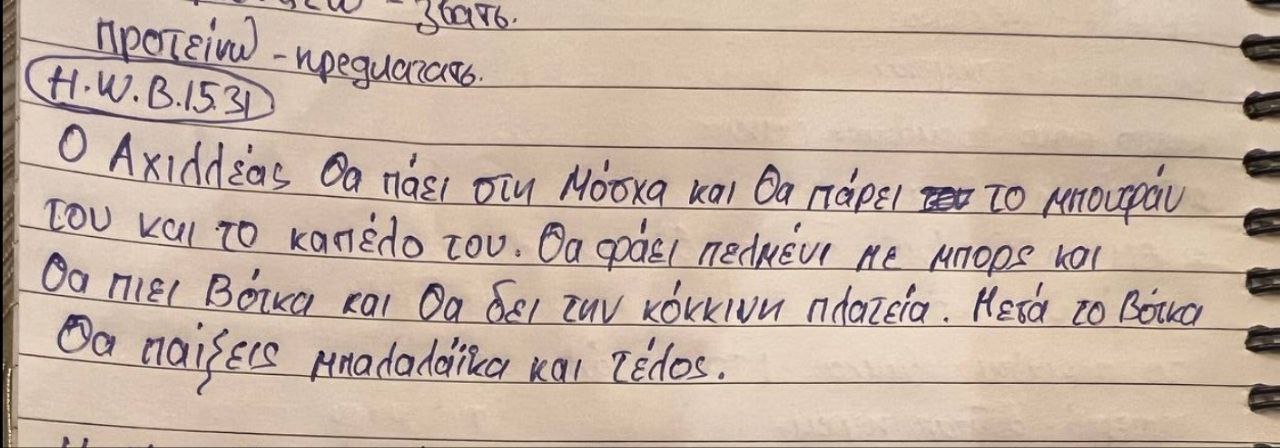 - звать.
προτείνω - предлагать.
H.W.B.15.31
Ο Αχιλλέάς θα πάει στη Μόσχα και θα πάρει το μπουφάν
του και το καπέλο του. Θα φάει πελμένι με μπορς και
θα πιει Βότκα και θα δει την κόκκινη πλατεία. Μετά το Βότκα
θα παίξεις μπαλαλάϊκα και τέλος.